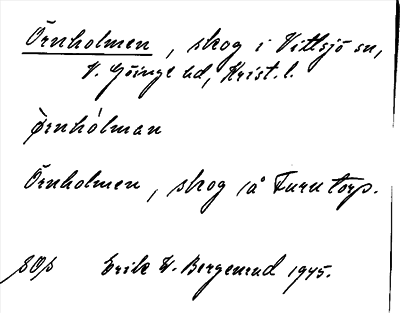 Örnholmen, skog i Vittsjö sn,
V. Göinge hd, Krist. l.
Ørnhólman
Örnholmen, skog på Furutorp.
SOs Erik W. Bergenrud 1945.